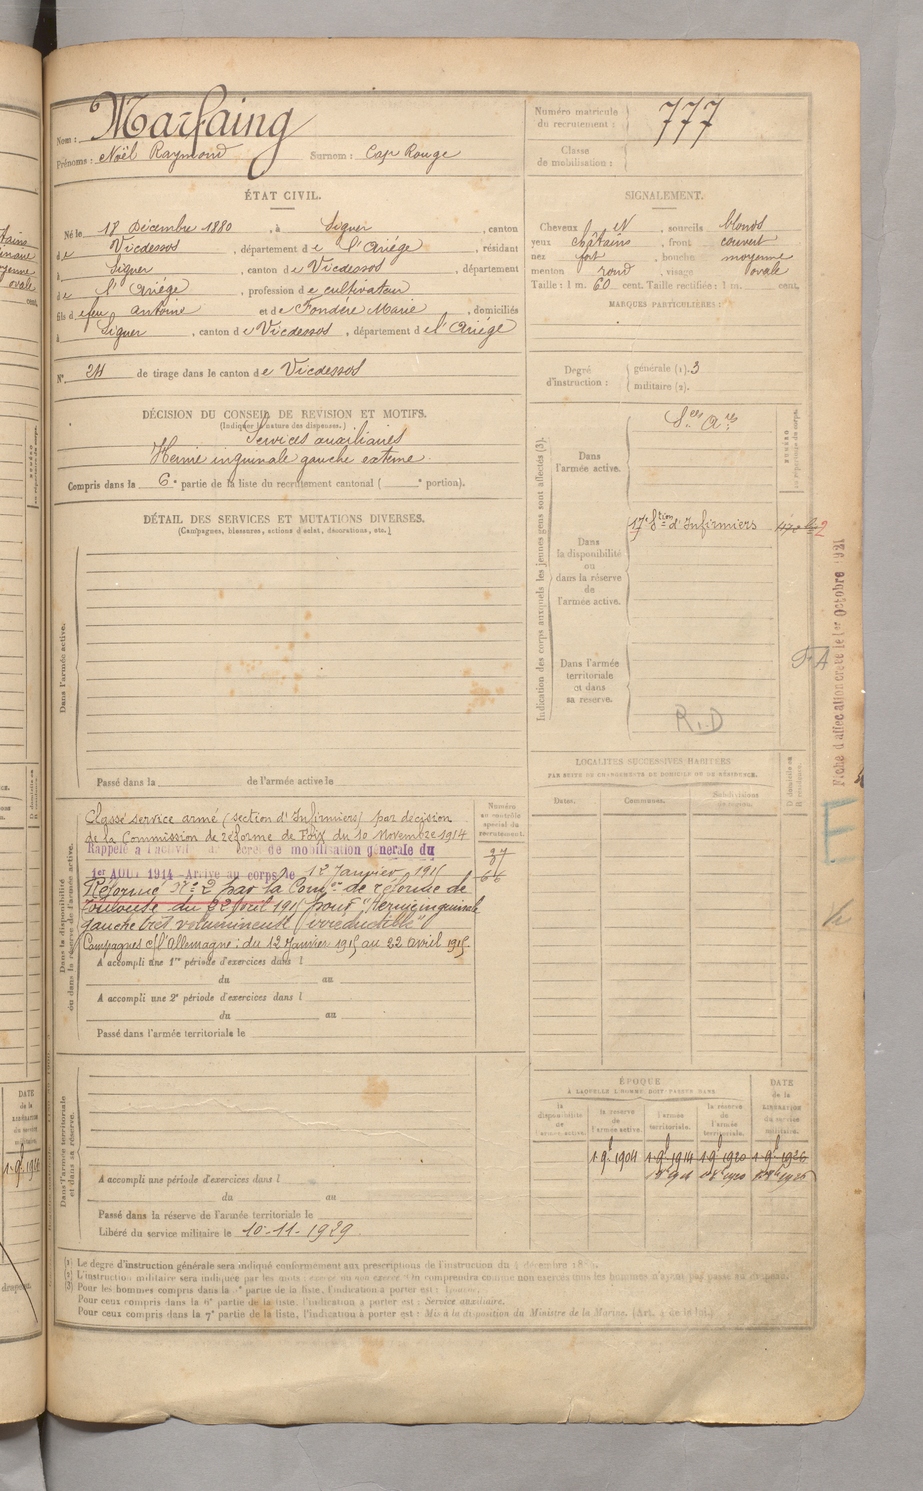 Nom : Marfaing
Prénoms : Noël Raymond Surnom : Cap Rouge
Numéro matricule du recrutement : 777
Classe de mobilisation :
ÉTAT CIVIL.
Né le 18 Décembre 1880, à Siguer, canton
de Vicdessos, département de l'Ariége, résidant
à Siguer, canton de Vicdessos, département
de l'Ariége, profession de cultivateur
fils de feu antoine et de Fondére Marie, domiciliés
à Siguer, canton de Vicdessos, département de l'Ariége
N° 24 de tirage dans le canton de Vicdessos
SIGNALEMENT.
Cheveux et , sourcils blonds
yeux châtains, front couvert
nez fort, bouche moyenne
menton rond, visage ovale
Taille : 1 m. 60 cent. Taille rectifiée : 1 m. cent.
MARQUES PARTICULIÈRES :
Degré d'instruction : générale (1). 3
militaire (2).
DÉCISION DU CONSEIL DE REVISION ET MOTIFS.
(Indiquer la nature des dispenses.)
Services auxiliaires
Hernie inguinale gauche externe.
Compris dans la 6e partie de la liste du recrutement cantonal ( e portion).
DÉTAIL DES SERVICES ET MUTATIONS DIVERSES.
(Campagnes, blessures, actions d'éclat, décorations, etc.)
Dans l'armée active.
Passé dans la de l'armée active le
Indication des corps auxquels les jeunes gens sont affectés (3).
NUMÉRO au répertoire du corps.
Dans l'armée active.
Sces Ares
17e Stion d'Infirmiers
2
Dans la disponibilité ou dans la réserve de l'armée active.
Dans l'armée territoriale et dans sa réserve.
R.D
F A
Fiche d'affectation créée le 1er Octobre 1921
LOCALITÉS SUCCESSIVES HABITÉES
PAR SUITE DE CHANGEMENTS DE DOMICILE OU DE RÉSIDENCE.
Dates. Communes. Subdivisions de région. D domicile ou R résidence.
Dans la disponibilité ou dans la réserve de l'armée active.
Numéro au contrôle spécial du recrutement.
Classé service armé (section d'Infirmiers) par décision
de la Commission de réforme de Foix du 10 Novembre 1914
Rappelé à l'activité décret de mobilisation générale du
1er AOUT 1914 - Arrivé au corps le 12 Janvier 1915
Réformé N° 2 par la Comon de réforme de
Toulouse du 22 Avril 1915 pour "Hernie inguinale
gauche très volumineuse (irréductible)"
Campagnes c/ l'Allemagne : du 12 Janvier 1915 au 22 avril 1915
A accompli une 1re période d'exercices dans l
du au
A accompli une 2e période d'exercices dans l
du au
Passé dans l'armée territoriale le
Dans l'armée territoriale et dans sa réserve.
A accompli une période d'exercices dans l
du au
Passé dans la réserve de l'armée territoriale le
Libéré du service militaire le 10-11-1929
ÉPOQUE
À LAQUELLE L'HOMME DOIT PASSER DANS
la disponibilité de l'armée active. la réserve de l'armée active. l'armée territoriale. la réserve de l'armée territoriale.
DATE de la LIBÉRATION du service militaire.
1 9b 1904 1 9b 1914 1 9b 1920 1 9b 1926
(1) Le degré d'instruction générale sera indiqué conformément aux prescriptions de l'instruction du 4 décembre
(2) L'instruction militaire sera indiquée par les mots : exercé ou non exercé. On comprendra comme non exercés tous les hommes n'ayant pas passé au drapeau.
(3) Pour les hommes compris dans la partie de la liste, l'indication à porter est :
Pour ceux compris dans la 6e partie de la liste, l'indication à porter est : Service auxiliaire.
Pour ceux compris dans la 7e partie de la liste, l'indication à porter est : Mis à la disposition du Ministre de la Marine. (Art. 4 de la loi.)